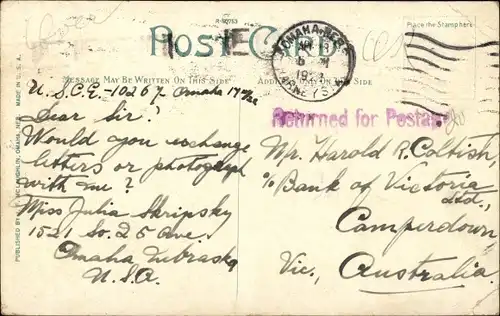 R-50753
POST CARD
Place the Stamp here
MESSAGE MAY BE WRITTEN ON THIS SIDE
ADDRESS ONLY ON THIS SIDE
OMAHA, NEBR.
Returned for Postage
U.S.C.E.-10267 Omaha
Dear Sir!
Would you exchange
letters or photograph
with me?
Miss Julia Skripsky
1521 So. 25 ave.
Omaha Nebraska
U.S.A.
Mr. Harold R. Coltish,
℅ Bank of Victoria
Ltd.,
Camperdown
Vic., Australia.
MADE IN U.S.A.